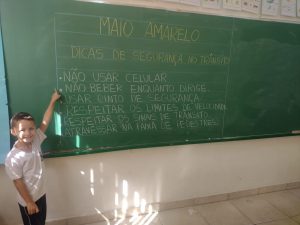 MAIO AMARELO
DICAS DE SEGURANÇA NO TRÂNSITO
• NÃO USAR CELULAR.
• NÃO BEBER ENQUANTO DIRIGE.
USAR CINTO DE SEGURANÇA.
RESPEITAR OS LIMITES DE VELOCIDADE
RESPEITAR OS SINAIS DE TRÂNSITO.
ATRAVESSAR NA FAIXA DE PEDESTRES.